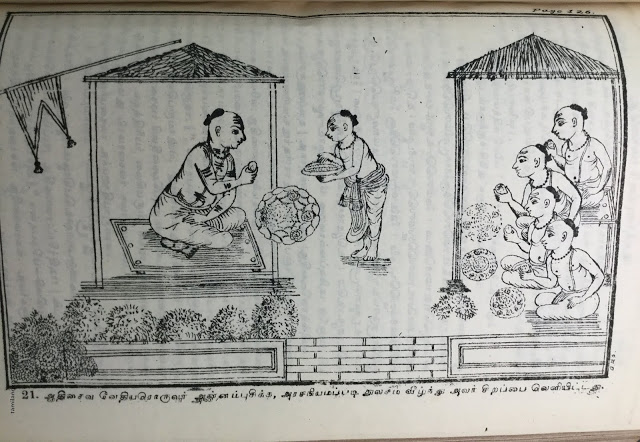 Page 126.
21. ஆதிசைவ வேதியரொருவர் அன்னம்புசிக்க, அரசநியமப்படி துவசம் வீழ்ந்து அவர் சிறப்பை வெளியிட்டது.